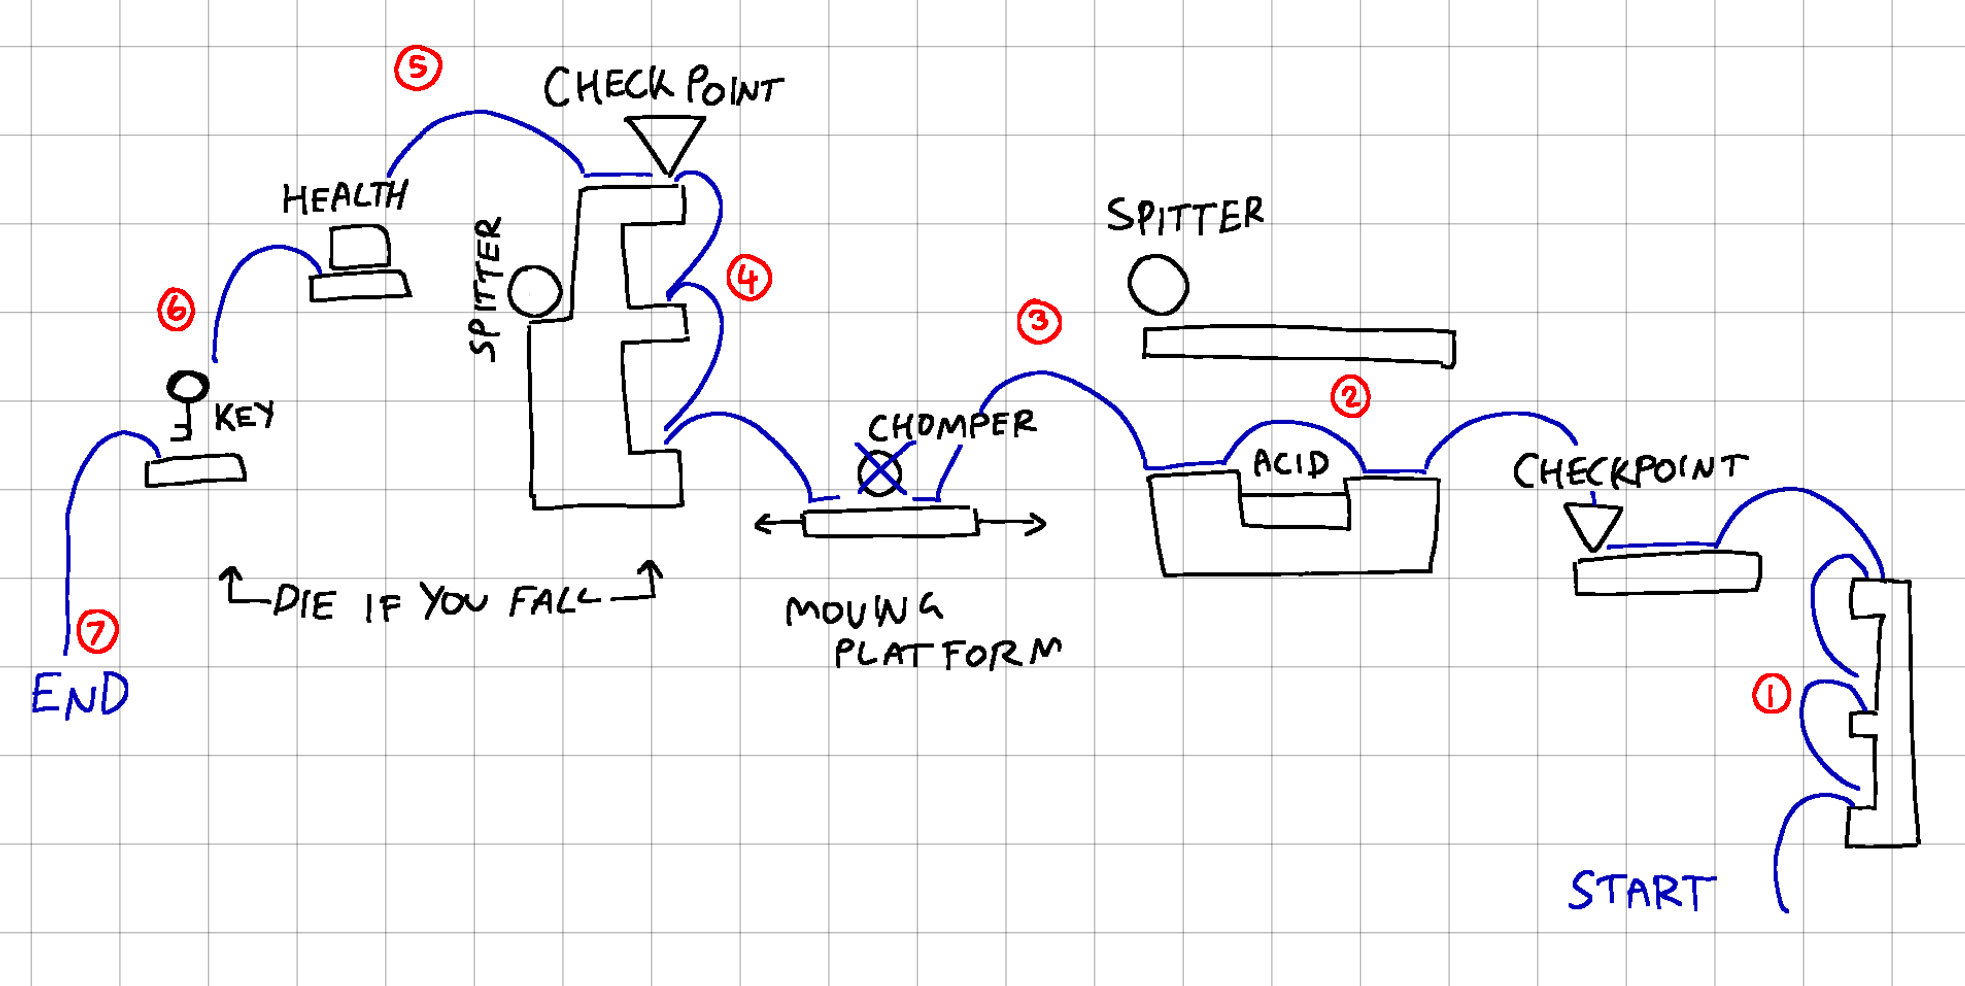 5
CHECKPOINT
HEALTH
SPITTER
SPITTER
4
6
3
2
KEY
CHOMPER
ACID
CHECKPOINT
DIE IF YOU FALL
MOVING
PLATFORM
7
END
1
START